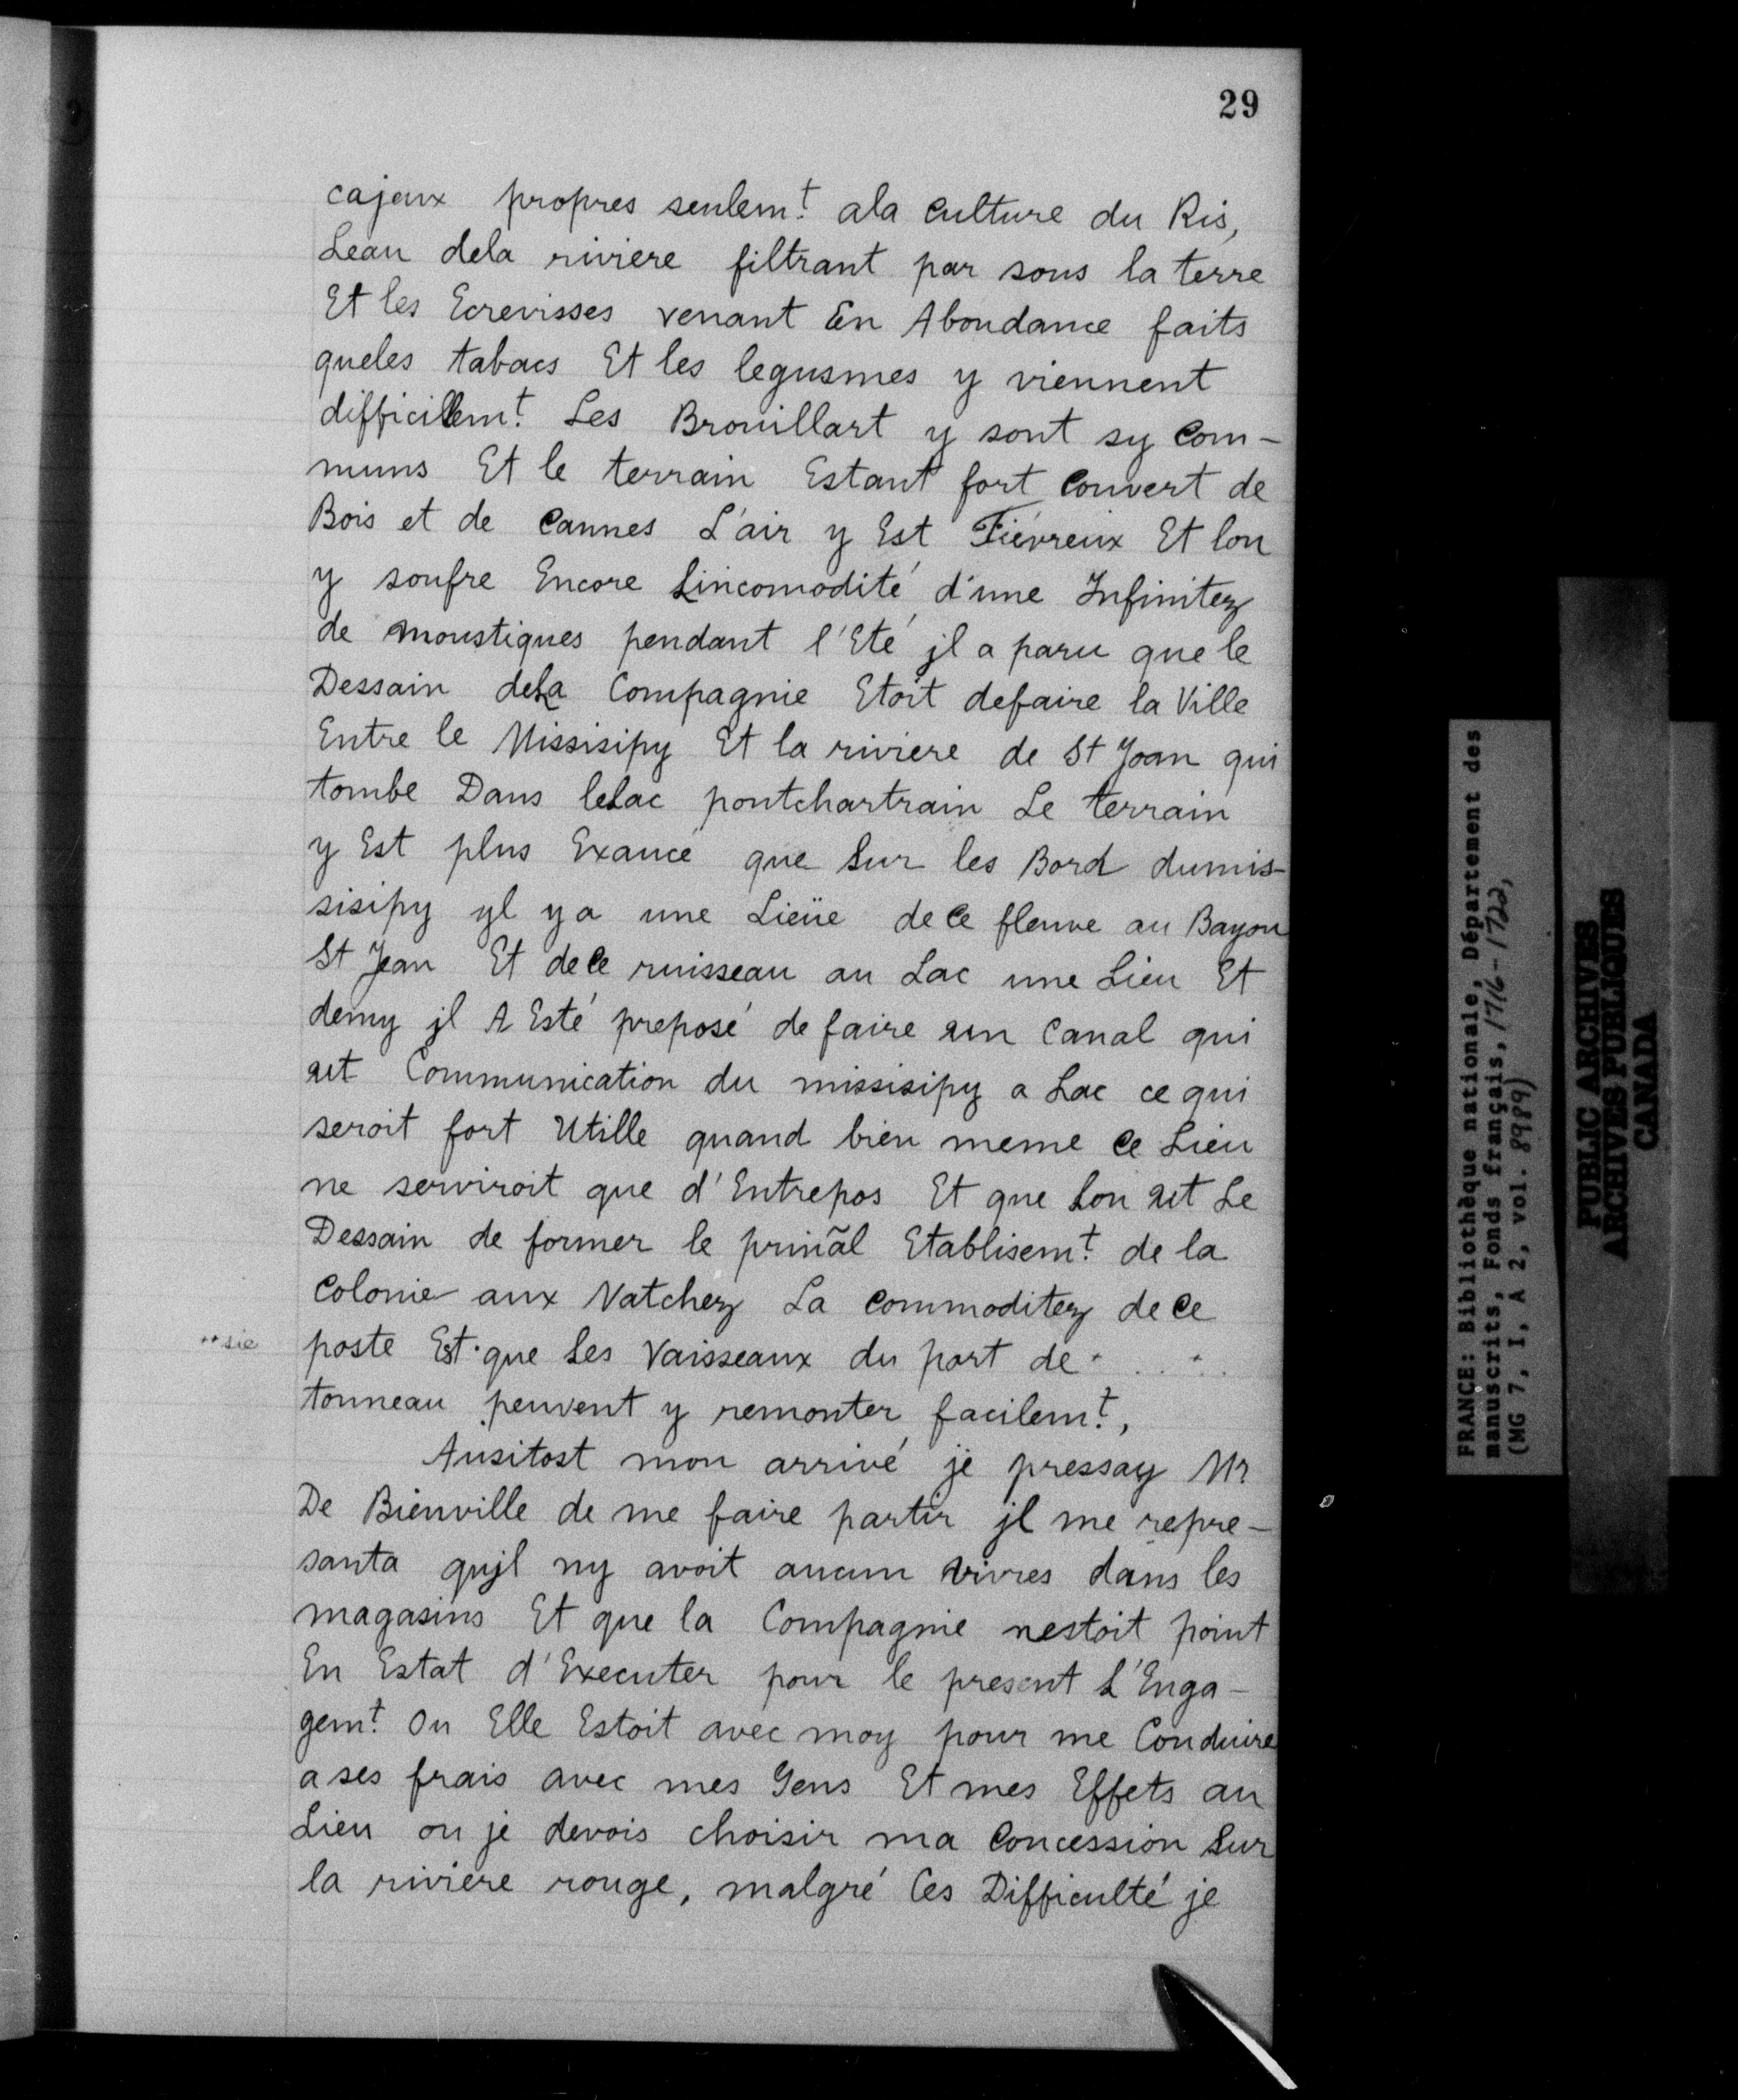 29
cajeux propres seulemt. ala Culture du Ris,
Leau dela riviere filtrant par sous la terre
Et les Ecrevisses venant En Abondance faits
queles tabacs Et les legusmes y viennent
difficillemt. Les Brouillart y sont sy Com-
muns Et le terrain Estant fort Couvert de
Bois et de Cannes L'air y Est Fiévreux Et lon
y soufre Encore Lincomodité d'une Infinitez
de moustiques pendant l'Eté jl a paru que le
Dessain dela Compagnie Etoit defaire la Ville
Entre le Missisipy Et la riviere de St Joan qui
tombe Dans leLac pontchartrain Le terrain
y Est plus Exaucé que Sur les Bord dumis-
sisipy yl y a une Lieüe de Ce fleuve au Bayou
St Jean Et de Ce ruisseau au Lac une Lieu Et
demy jl A Esté preposé de faire un Canal qui
ut Communication du missisipy a Lac ce qui
seroit fort Utille quand bien meme Ce Lieu
ne serviroit que d'Entrepos Et que Lon ut Le
Dessain de former le prinãl Etablisemt. de la
Colonie aux Natchez La Commoditez de Ce
**sic poste Est que Les Vaisseaux du port de * . . * .
tonneau peuvent y remonter facilemt.,
Ausitost mon arrivé je pressay Mr
De Bienville de me faire partir jl me repre-
santa qujl ny avoit aucun vivres dans les
magasins Et que la Compagnie nestoit point
En Estat d'Executer pour le present L'Enga-
gemt. Ou Elle Estoit avec moy pour me Conduire
a ses frais avec mes Gens Et mes Effets au
Lieu ou je devois choisir ma Concession Sur
la riviere rouge, malgré Ces Difficulté je
FRANCE: Bibliothèque nationale, Département des
manuscrits, Fonds français, 1716-1722,
(MG 7, I, A 2, vol. 8989)
PUBLIC ARCHIVES
ARCHIVES PUBLIQUES
CANADA